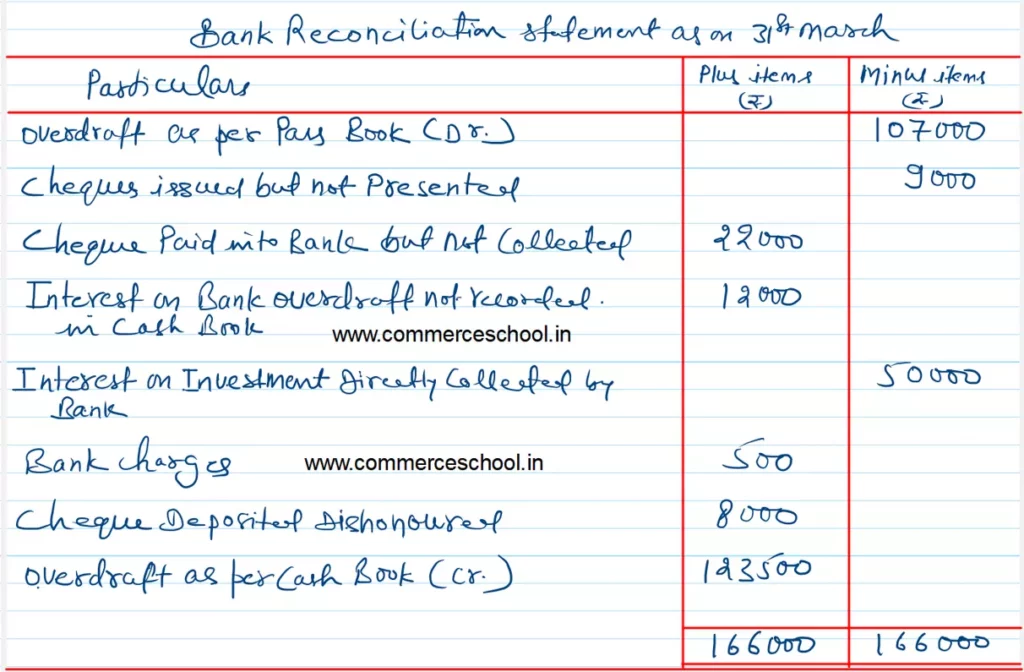 Bank Reconciliation statement as on 31st march
Particulars Plus items (₹) Minus items (₹)
overdraft as per Pass Book (Dr.) 107000
Cheques issued but not Presented 9000
Cheque Paid into Bank but not Collected 22000
Interest on Bank overdraft not recorded. 12000
in Cash Book www.commerceschool.in
Interest on Investment Directly Collected by 50000
Bank
Bank charges www.commerceschool.in 500
Cheque Deposited Dishonoured 8000
overdraft as per Cash Book (Cr.) 123500
166000 166000